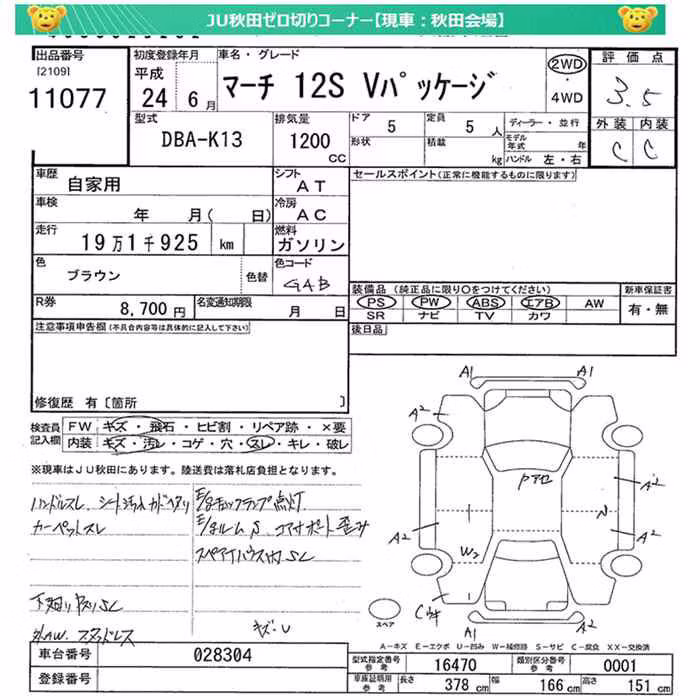 JU秋田ゼロ切りコーナー【現車：秋田会場】
出品番号
[2109]
11077
初度登録年月
平成
24 年 6 月
車名・グレード
マーチ 12S Vパッケージ
2WD
・
4WD
評価点
3.5
外装 内装
C C
型式
DBA-K13
排気量
1200
CC
ドア
5
定員
5 人
形状
積載
kg
ディーラー・並行
モデル年式 年
ハンドル 左・右
車歴
自家用
シフト
AT
セールスポイント(正常に機能するものに限ります)
車検
年 月( 日)
冷房
AC
走行
19万1千925 km
燃料
ガソリン
色
ブラウン
色替
色コード
GAB
装備品 (純正品に限り○をつけてください)
PS PW ABS エアB AW
SR ナビ TV カワ
新車保証書
有・無
R券
8,700円
名変通知期限
月 日
後日品
注意事項申告欄(不具合内容等は具体的に記入して下さい)
修復歴 有〔箇所 〕
検査員記入欄
FW キズ・飛石・ヒビ割・リペア跡・×要
内装 キズ・汚レ・コゲ・穴・スレ・キレ・破レ
※現車はJU秋田にあります。陸送費は落札店負担となります。
ハンドルスレ、シート汚れ
カーペットスレ
E/gチェックランプ点灯
E/gルームS、コアサポート歪み
スペアタイヤハウス内SL
キズ・U
A1 A1
A2
Pアセ
A2
A2
A2
W2
A1
A2
スペア
A-キズ E-エクボ U-凹み W-補修跡 S-サビ C-腐食 XX-交換済
車台番号
028304
登録番号
型式指定番号
参考
16470
類別区分番号
参考
0001
車庫証明用
参考
長さ 378 cm 幅 166 cm 高さ 151 cm